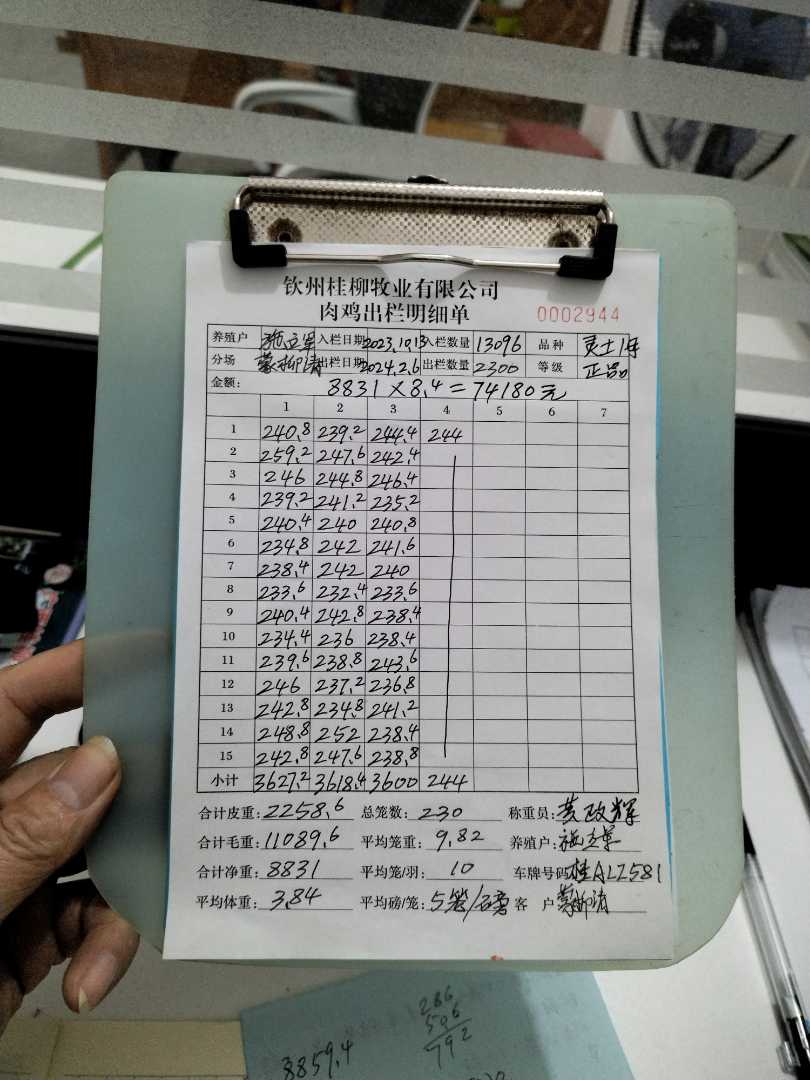 钦州桂柳牧业有限公司
肉鸡出栏明细单 0002944
养殖户 施立军 入栏日期 2023.10.13 入栏数量 13096 品种 灵士1号
分场 蒙柳清 出栏日期 2024.2.6 出栏数量 2300 等级 正品
金额: 8831×8.4=74180元
1 2 3 4 5 6 7
1 240.8 239.2 244.4 244
2 259.2 247.6 242.4
3 246 244.8 246.4
4 239.2 241.2 235.2
5 240.4 240 240.8
6 234.8 242 241.6
7 238.4 242 240
8 233.6 232.4 233.6
9 240.4 242.8 238.4
10 234.4 236 238.4
11 239.6 238.8 243.6
12 246 237.2 236.8
13 242.8 234.8 241.2
14 248.8 252 238.4
15 242.8 247.6 238.8
小计 3627.2 3618.4 3600 244
合计皮重: 2258.6 总笼数: 230 称重员: 黄政辉
合计毛重: 11089.6 平均笼重: 9.82 养殖户: 施立军
合计净重: 8831 平均笼/羽: 10 车牌号码: 桂ALZ581
平均体重: 3.84 平均磅/笼: 5笼/磅 客户 蒙柳清
286
506
792
8859.4